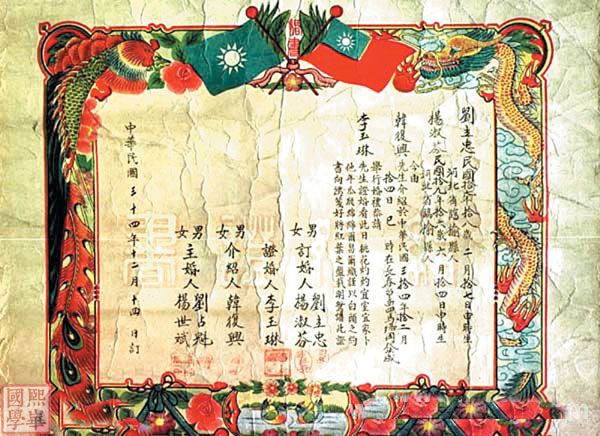 婚書
劉主忠民國拾年拾八歲 二月拾七日申時生
河北省臨榆縣人
楊淑芬民國拾九年拾六歲 六月拾四日申時生
河北省臨榆縣人
今由
韓復興先生介紹於中華民國三十四年拾二月
拾四日 巳 時在長春市西四馬路
舉行婚禮恭請
李玉琳先生證婚看此日桃花灼灼宜室宜家卜
他年瓜瓞綿綿爾昌爾熾謹以白頭之約
書向鴻箋好將紅葉之盟載明鴛譜此證
男 女 訂婚人 劉主忠 楊淑芬
證婚人 李玉琳
男 女 介紹人 韓復興
男 女 主婚人 劉占魁 楊世斌
中華民國 三十四年十二月十四日訂
熙華國學